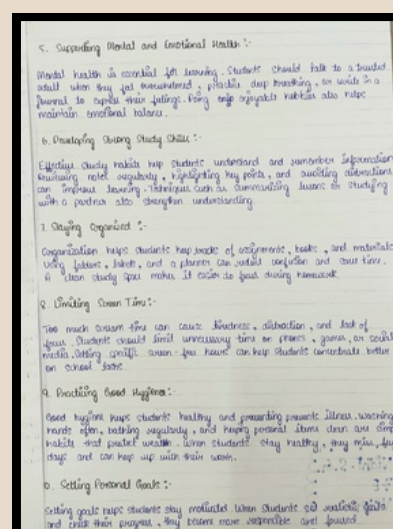 5. Supporting Mental and Emotional Health :-
Mental health is essential for learning. Students should talk to a trusted
adult when they feel overwhelmed, practice deep breathing, or write in a
journal to express their feelings. Doing enjoyable hobbies also helps
maintain emotional balance.
6. Developing Strong Study Skills :-
Effective study habits help students understand and remember information
Reviewing notes regularly, highlighting key points, and avoiding distractions
can improve learning. Techniques such as summarizing lessons or studying
with a partner also strengthen understanding.
7. Staying Organized :-
Organization helps students keep tracks of assignments, books, and materials
Using folders, labels, and a planner can reduce confusion and save time.
A clean study space makes it easier to focus during homework.
8. Limiting Screen Time :-
Too much screen time can cause tiredness, distraction, and lack of
focus. Students should limit unnecessary time on phones, games, or social
media. Setting specific screen-free hours can help students concentrate better
on school tasks.
9. Practicing Good Hygiene :-
Good hygiene keeps students healthy and preventing prevents illness. Washing
hands often, bathing regularly, and keeping personal items clean are simple
habits that protect health. When students stay healthy, they miss few
days and can keep up with their work.
10. Setting Personal Goals :-
Setting goals helps students stay motivated. When students set realistic goals
and check their progress, they become more responsible and focused.